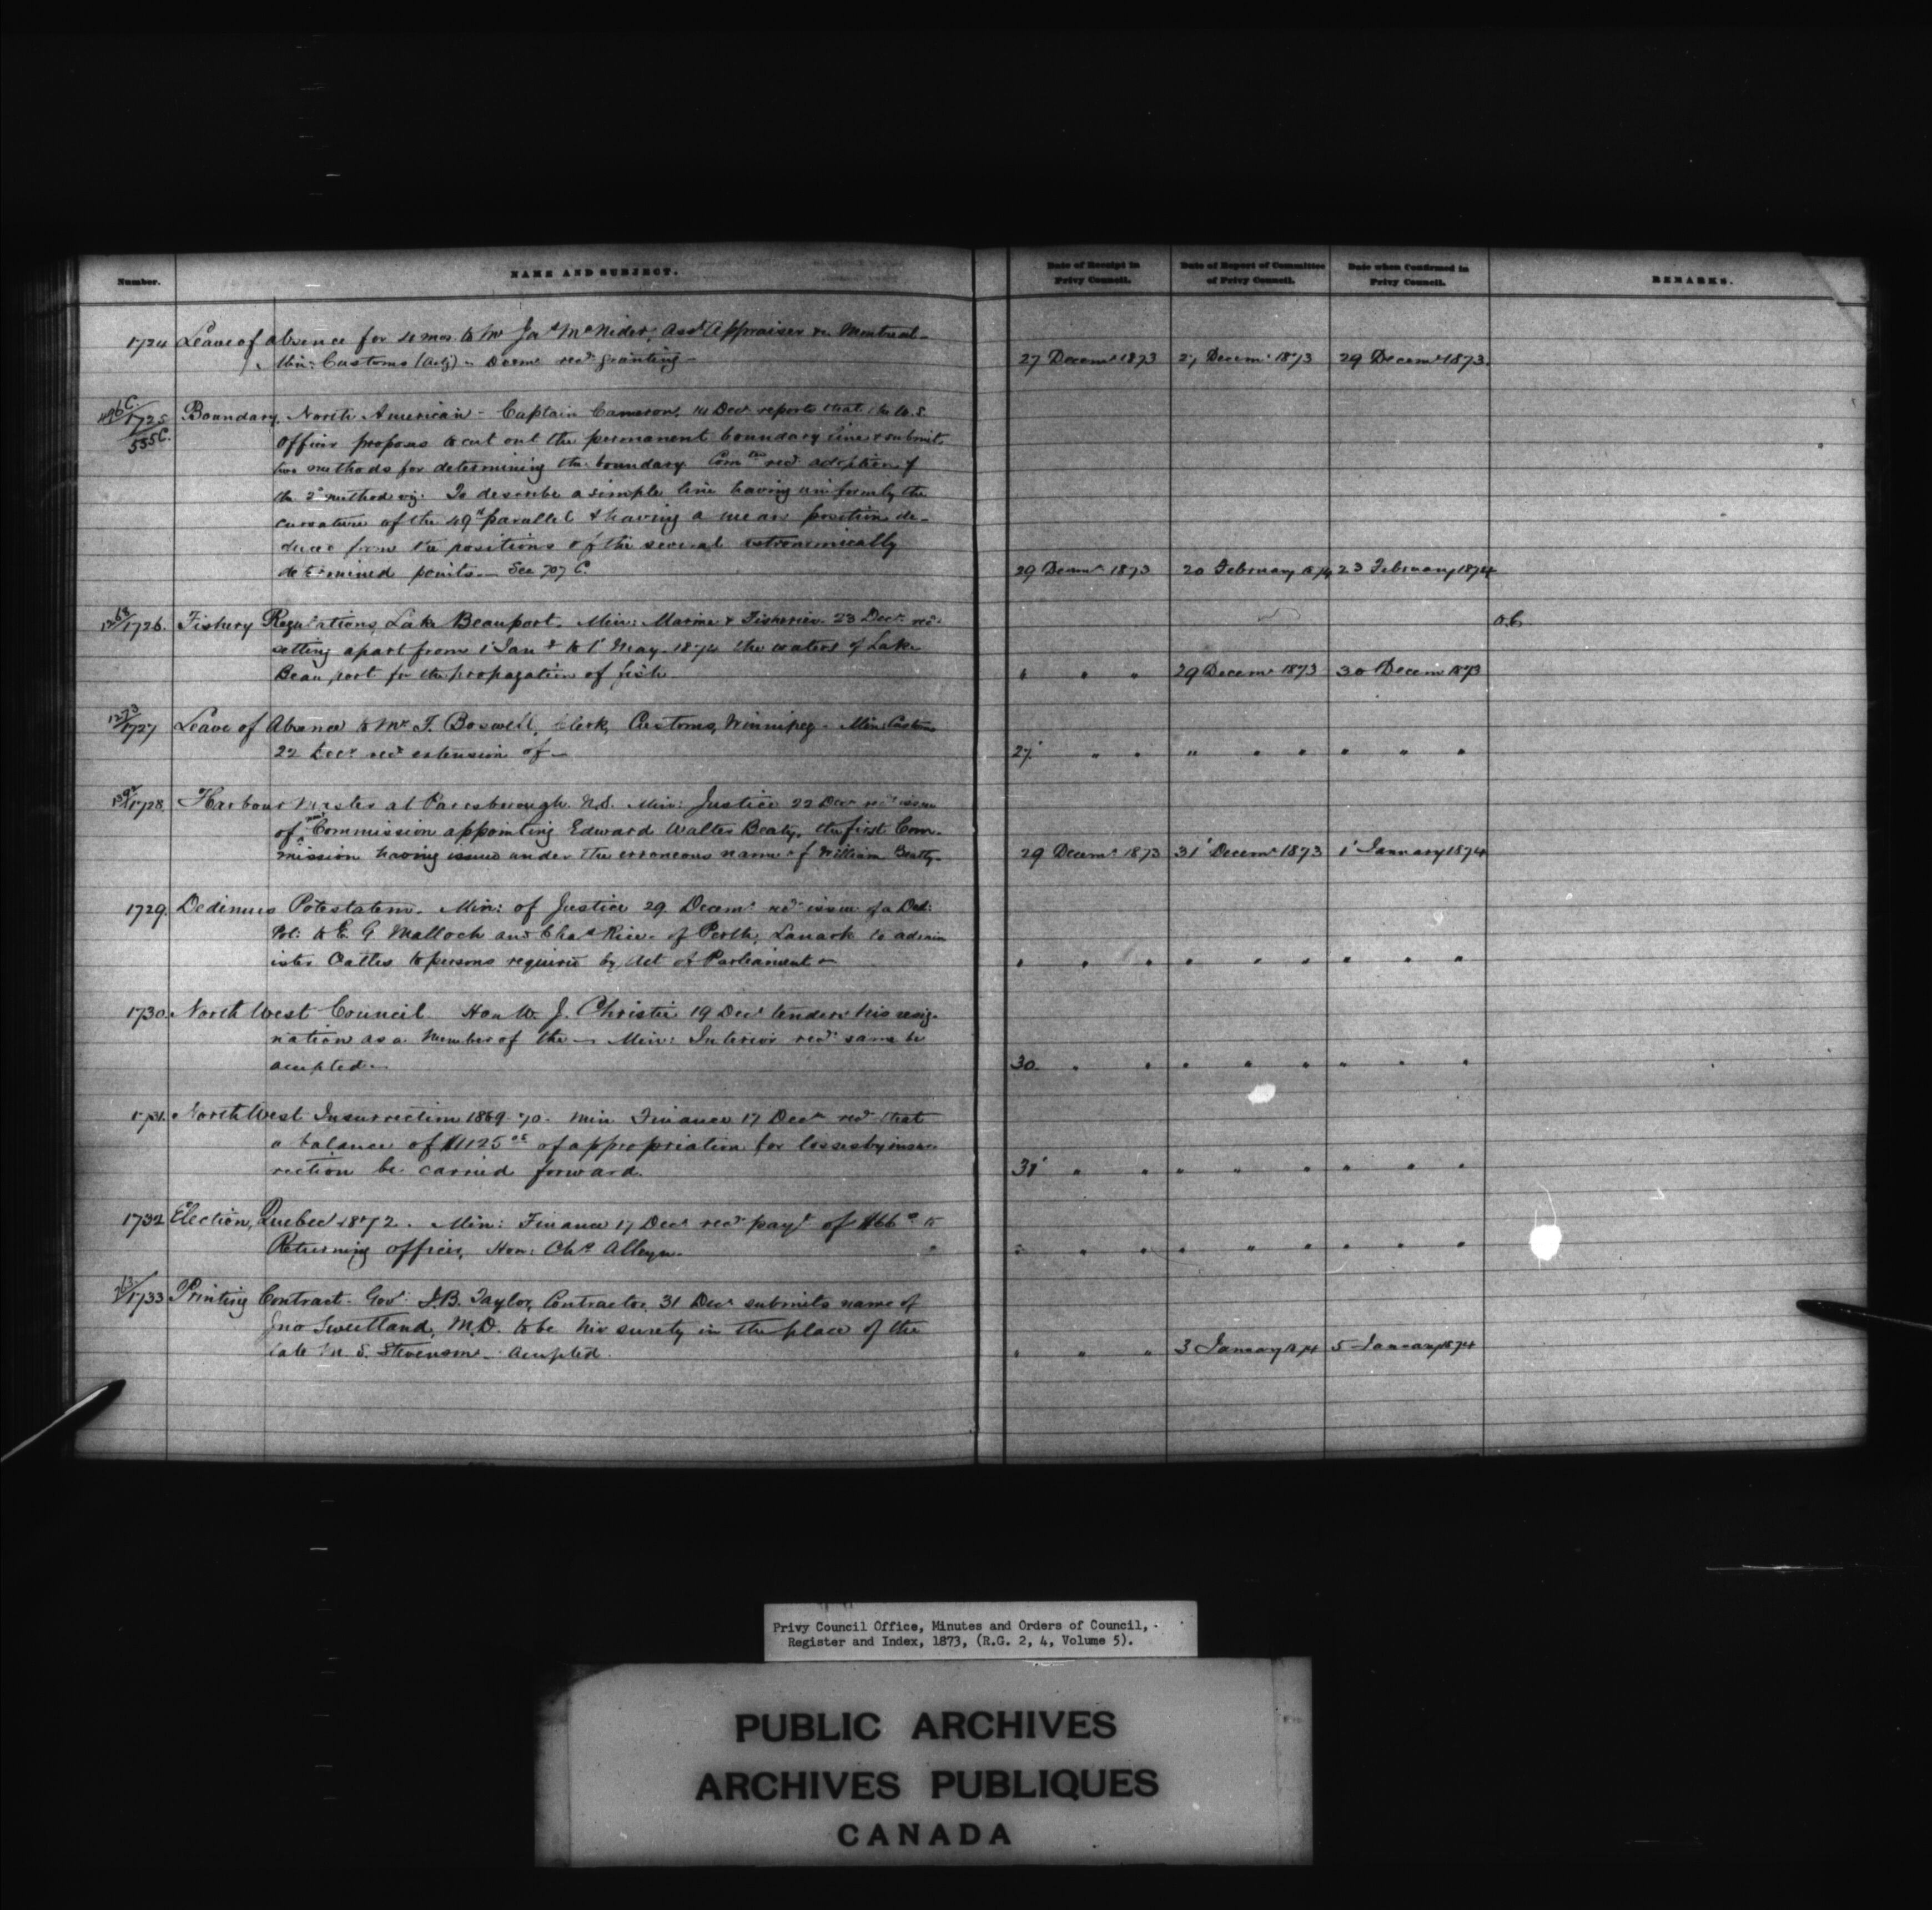 Number.
NAME AND SUBJECT.
Date of Receipt in Privy Council.
Date of Report of Committee of Privy Council.
Date when Confirmed in Privy Council.
REMARKS.
1724 Leave of absence for mos. to Mr Jas McNider, Asst Appraiser Montreal
Min: Customs (Actg) Decemr recds granting 27 Decemr 1873 27 Decemr 1873 29 Decemr 1873.
1725 555C. Boundary, North American - Captain Cameron, Decr reports that the U.S.
Officer proposes to cut out the permanent boundary line & submits
two methods for determining the boundary. Comtee recd adoption of
the 2d method viz: To describe a simple line having uniformly the
curvature of the 49th parallel & having a mean position de-
duced from the positions of the several astronomically
determined points. See 707 C. 29 Decemr 1873 20 February 1874 23 February 1874
1726. Fishery Regulations, Lake Beauport. Min: Marine & Fisheries 23 Decr recds
setting apart from 1' Jany to 1' May 1874 the waters of Lake
Beauport for the propagation of fish " " " 29 Decemr 1873 30 Decemr 1873
1727 Leave of Absence to Mr. Boswell, Clerk, Customs, Winnipeg - Min: Customs
22 Decr recds extension of 27 " " " " " " " "
1728. Harbour Master at Parrsborough N.S. Min: Justice 22 Decr recds issue
of new Commission appointing Edward Walter Beaty, the first Com-
mission having issued under the erroneous name of William Beatty. 29 Decemr 1873 31' Decemr 1873 1' January 1874
1729. Dedimus Potestatem. Min: of Justice 29 Decemr recds issue of a Ded:
Pot: to E. G. Malloch and Chas Rice of Perth, Lanark to admin
ister Oaths to persons required by Act of Parliament " " " " " " " " "
1730. North West Council Hon W. J. Christie 19 Decr tenders his resig-
nation as a Member of the - Min: Interior recds same be
accepted 30 " " " " " " " "
1731. North West Insurrection 1869-70. Min Finance 17 Decr recds that
a balance of $1125 of appropriation for losses by insur-
rection be carried forward. 31' " " " " " " " "
1732 Election, Quebec 1872. Min: Finance 17 Decr recds payt of $66 to
Returning officer, Hon: Chs Alleyn. " " " " " " " " "
1733 Printing Contract. Govt I.B. Taylor, Contractor, 31 Decr submits name of
Jno Sweetland, M.D. to be his surety in the place of the
late M. S. Stevenson. Accepted. " " " 3 January 1874 5 January 1874
Privy Council Office, Minutes and Orders of Council,
Register and Index, 1873, (R.G. 2, 4, Volume 5).
PUBLIC ARCHIVES
ARCHIVES PUBLIQUES
CANADA